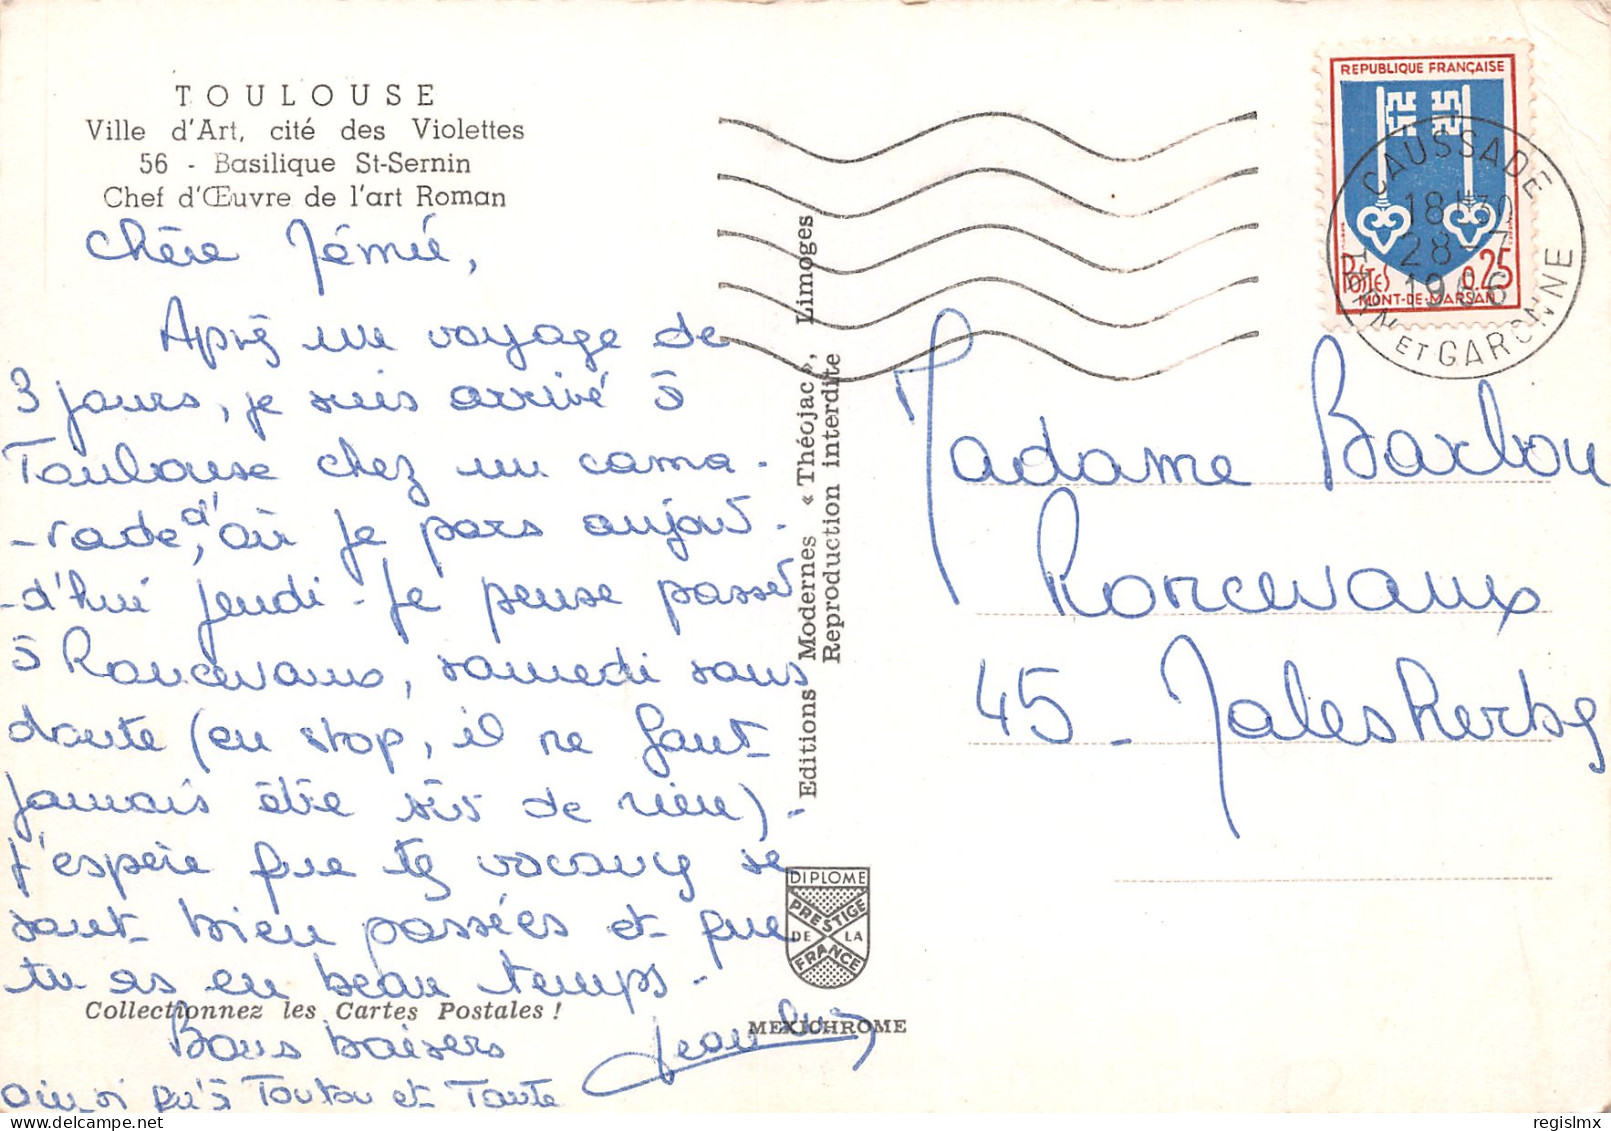 TOULOUSE
Ville d'Art, cité des Violettes
56 - Basilique St-Sernin
Chef d'Œuvre de l'art Roman
Chère Mémée,
Après un voyage de
3 jours, je suis arrivé à
Toulouse chez un cama-
-rade, d'où je pars aujour-
-d'hui jeudi - Je pense passer
à Roncevaux, samedi sans
doute (en stop, il ne faut
jamais être sûr de rien) -
J'espère que tes vacances se
sont bien passées et que
tu as eu beau temps -
Collectionnez les Cartes Postales !
Bons baisers
ainsi qu'à Toutou et Tante
Editions Modernes « Théojac », Limoges
Reproduction interdite
DIPLOME
PRESTIGE
DE LA
FRANCE
MEXICHROME
REPUBLIQUE FRANÇAISE
POSTES 0.25
MONT-DE-MARSAN
CAUSSADE
18H30
28-7
1966
TARN ET GARONNE
Madame Barbou
Roncevaux
45 - Malesherbes
regislmx